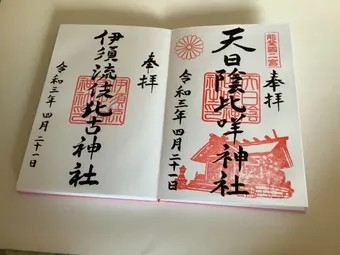 能登國二宮
奉拝
天日陰比咩神社
令和三年四月二十一日
奉拝
伊須流岐比古神社
令和三年四月二十一日